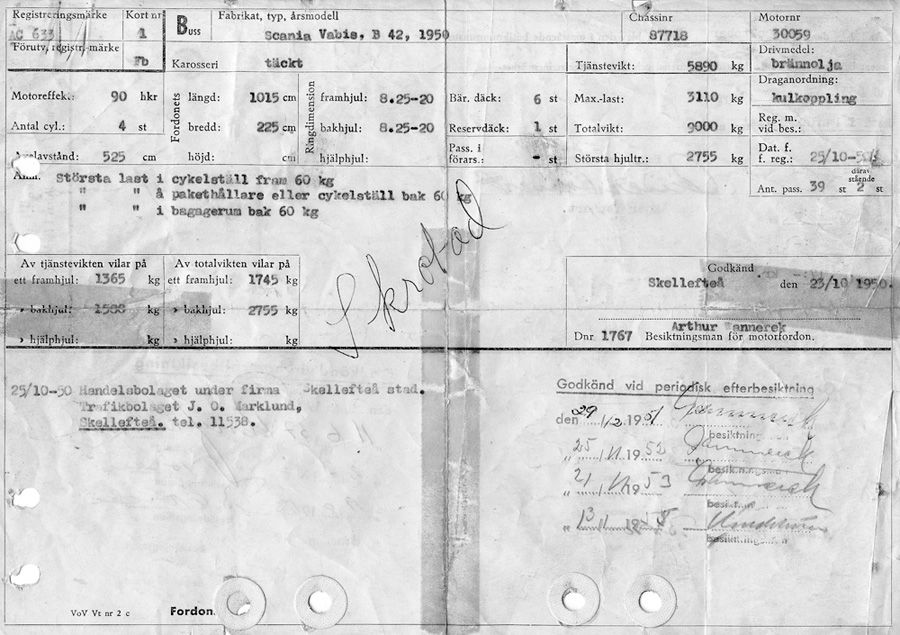 Registreringsmärke Kort nr B Fabrikat, typ, årsmodell Chassinr Motornr
AC 633 1 Buss Scania Vabis, B 42, 1950 87718 30059
Förutv. registr.-märke Fb Karosseri täckt Tjänstevikt: 5890 kg Drivmedel: brännolja
Motoreffekt: 90 hkr Fordonets längd: 1015 cm Ringdimension framhjul: 8.25-20 Bär. däck: 6 st Max.-last: 3110 kg Draganordning: kulkoppling
Antal cyl.: 4 st bredd: 225 cm bakhjul: 8.25-20 Reservdäck: 1 st Totalvikt: 9000 kg Reg. m. vid bes.:
Axelavstånd: 525 cm höjd: cm hjälphjul: Pass. i förars.: - st Största hjultr.: 2755 kg Dat. f. f. reg.: 25/10-50
Anm. Största last i cykelställ fram 60 kg Ant. pass. 39 st därav stående 2 st
" " å pakethållare eller cykelställ bak 60 kg
" " i bagagerum bak 60 kg
Skrotad
Av tjänstevikten vilar på Av totalvikten vilar på Godkänd
ett framhjul: 1365 kg ett framhjul: 1745 kg Skellefteå den 23/10 1950.
» bakhjul: 1580 kg » bakhjul: 2755 kg
» hjälphjul: kg » hjälphjul: kg Arthur Wannerek
Dnr 1767 Besiktningsman för motorfordon.
25/10-50 Handelsbolaget under firma Skellefteå stad.
Trafikbolaget J. O. Marklund,
Skellefteå. tel. 11538.
Godkänd vid periodisk efterbesiktning
den 29 1/2 1951
besiktning
„ 25/11 1952
besiktningsman
„ 21/11 1953
besiktn
„ 13
besiktningsman
VoV Vt nr 2 c Fordon.